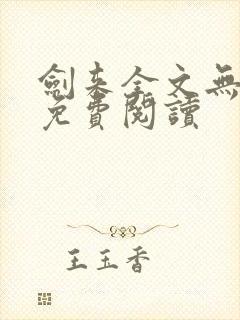 劍來全文無
免費閱讀
王玉香